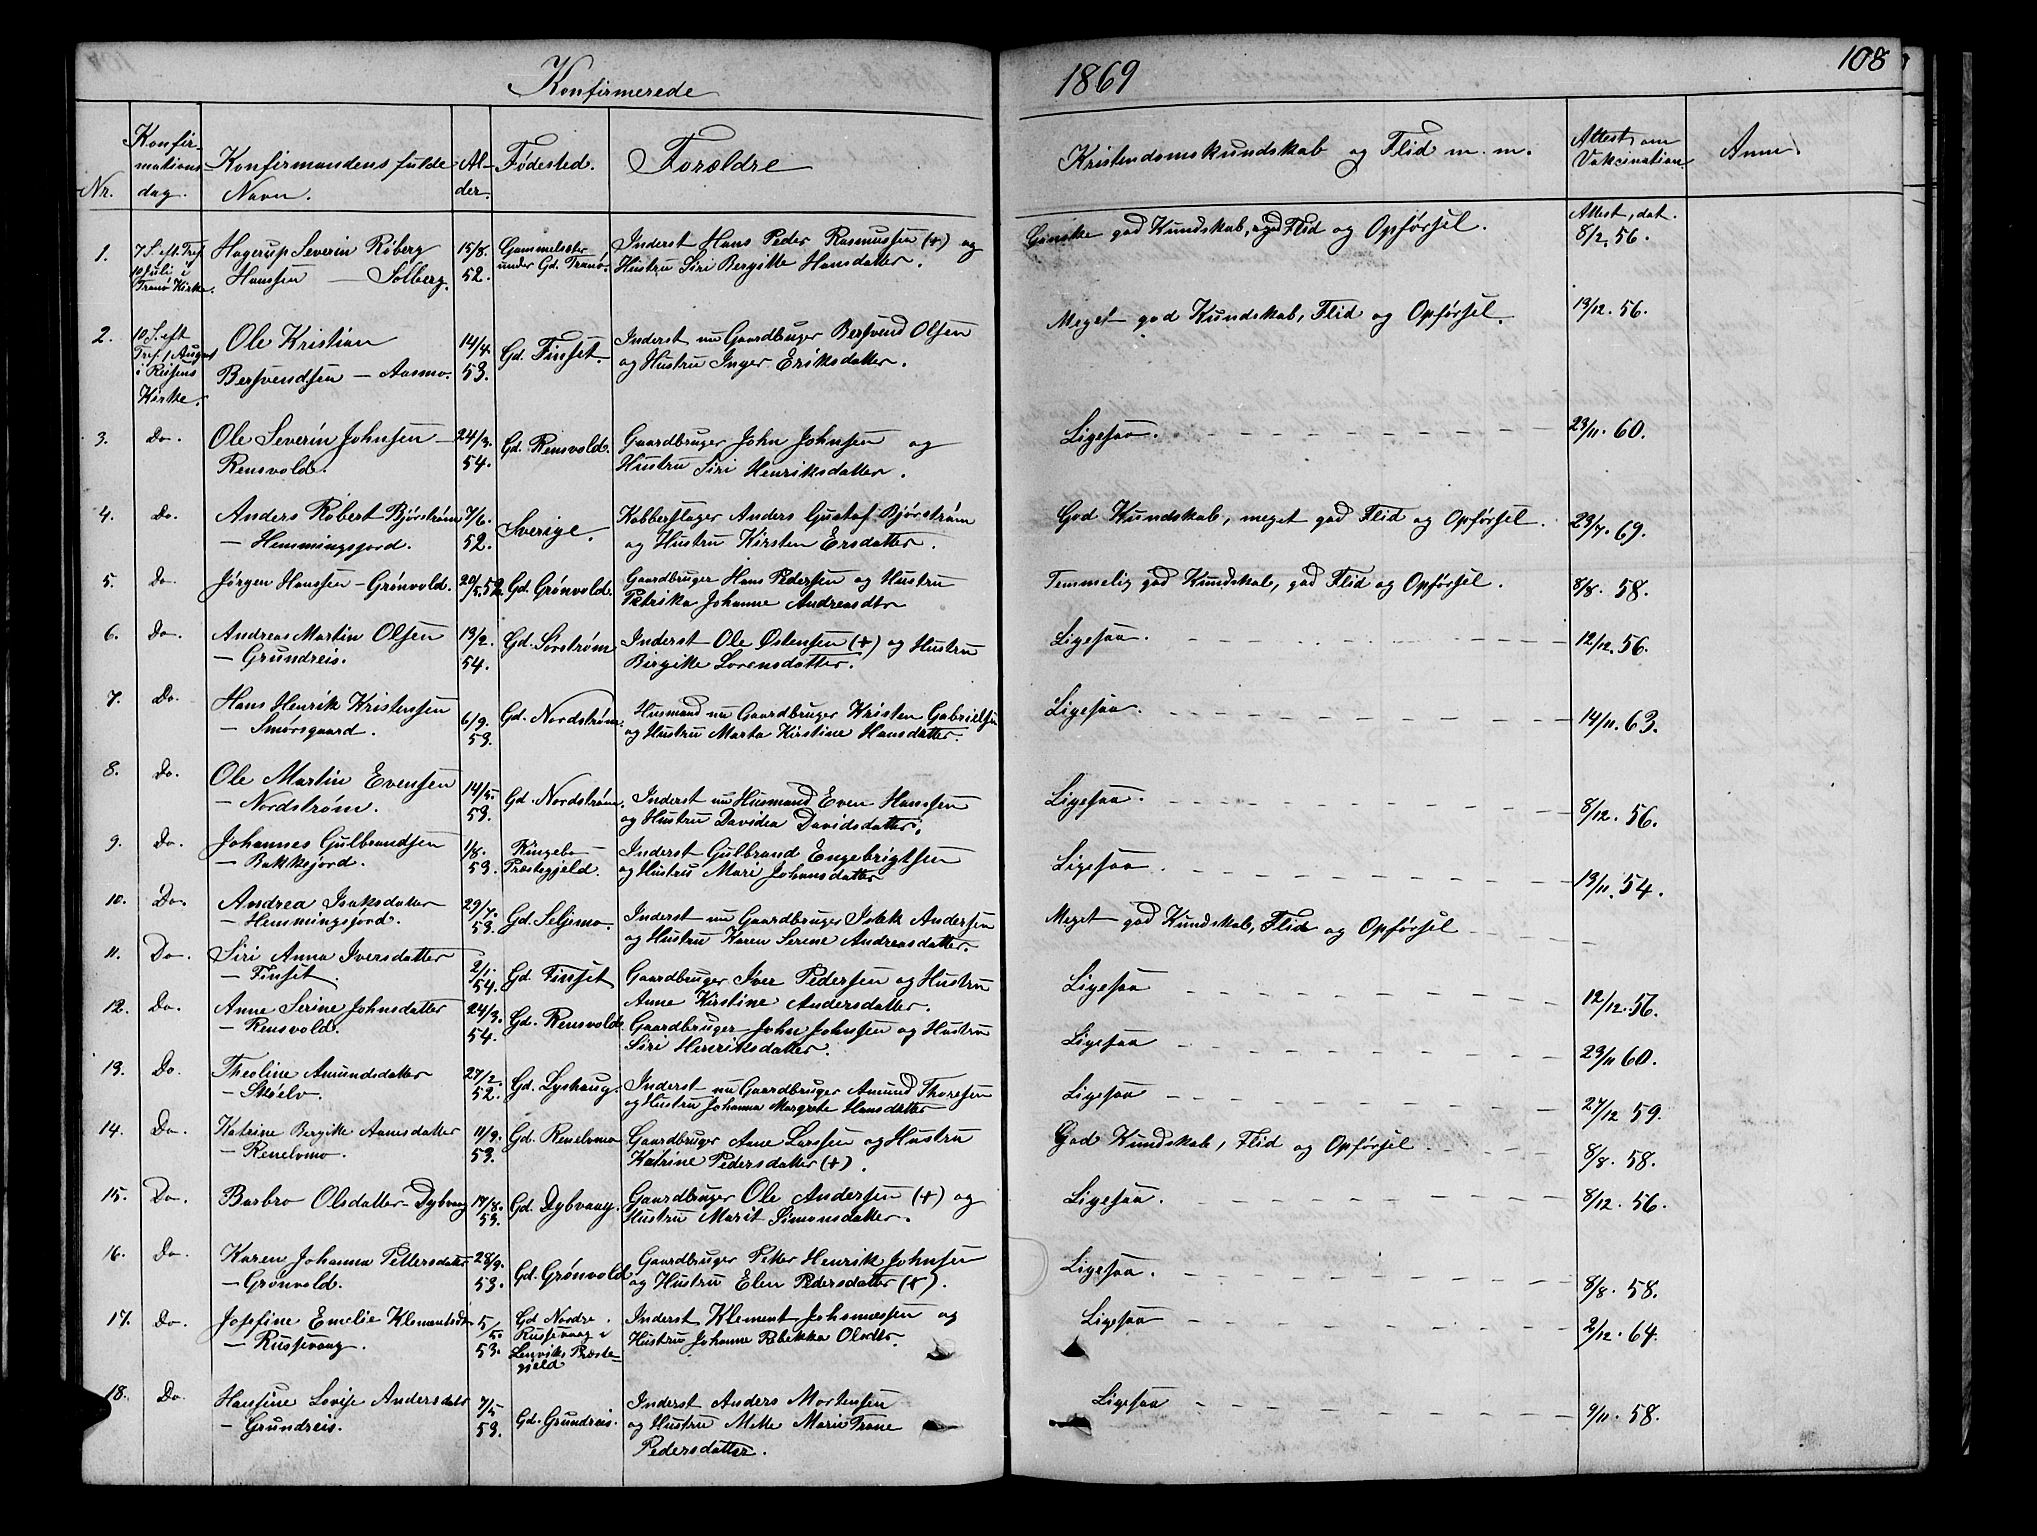 108
Konfirmerede
1869
Nr.
Konfir-
mations-
dag.
Konfirmandens fulde
Navn.
Al-
der.
Fødested.
Forældre
Kristendomskundskab og Flid m. m.
Attest om
Vakcination
Anm.
1.
7 S. eft. Tref.
10 Juli i
Tranø Kirke.
Hagerup Severin Röberg
Hanssen — Solberg.
15/8.
52.
Gammelsæter
under Gd. Tranø.
Inderst Hans Peder Rasmussen (+) og
Hustru Siri Bergitte Hansdatter.
Ganske god Kundskab, Flid og Opførsel.
Attest, dat.
8/2. 56.
2.
10 S. eft
Tref. 1 August
i Reisens
Kirke.
Ole Kristian
Bersvendsen — Aasmo.
14/4.
53.
Gd. Finset.
Inderst nu Gaardbruger Bersvend Olsen
og Hustru Inger Eriksdatter.
Meget god Kundskab, Flid og Opførsel.
13/12. 56.
3.
Do.
Ole Severin Johnsen —
Rensvold.
24/3.
54.
Gd. Rensvold.
Gaardbruger John Johnsen og
Hustru Siri Henriksdatter.
Ligesaa.
23/11. 60.
4.
Do.
Anders Robert Bjørstrøm
— Hemmingsjord.
7/6.
52.
Sverige.
Kobberslager Anders Gustaf Bjørstrøm
og Hustru Kirsten Ersdatter.
God Kundskab, meget god Flid og Opførsel.
23/7. 69.
5.
Do.
Jørgen Hanssen — Grønvold.
20/5. 52.
Gd. Grønvold.
Gaardbruger Hans Pedersen og Hustru
Petrika Johanne Andreasdtr
Temmelig god Kundskab, god Flid og Opførsel.
8/8. 58.
6.
Do.
Andreas Martin Olsen
— Grundreis.
13/2.
54.
Gd. Sørstrøm
Inderst Ole Østensen (+) og Hustru
Bergitte Lorensdatter.
Ligesaa.
12/12. 56.
7.
Do.
Hans Henrik Kristensen
— Smørsgaard.
6/9.
53.
Gd. Nordstrøm.
Husmand nu Gaardbruger Kristen Gabrielsen
og Hustru Marta Kirstine Hansdatter.
Ligesaa.
14/11. 63.
8.
Do.
Ole Martin Evensen
— Nordstrøm.
14/5.
53.
Gd. Nordstrøm.
Inderst nu Husmand Even Hanssen
og Hustru Davidea Davidsdatter.
Ligesaa.
8/12. 56.
9.
Do.
Johannes Gulbrandsen
— Bakkejord.
1/8.
53.
Ringebo
Præstegjeld.
Inderst Gulbrand Engebrigtsen
og Hustru Mari Johansdatter
Ligesaa.
13/11. 54.
10.
Do.
Andrea Isaksdatter
— Hemmingsjord.
29/7.
53.
Gd. Seljemo.
Inderst nu Gaardbruger Isak Andersen
og Hustru Karen Serene Andreasdatter.
Meget god Kundskab, Flid og Opførsel
11.
Do.
Siri Anna Iversdatter
— Finset.
2/1.
54.
Gd. Finset
Gaardbruger Iver Pedersen og Hustru
Anne Kirstine Andersdatter.
Ligesaa
12/12. 56.
12.
Do.
Anne Serine Johnsdatter
— Rensvold.
24/3.
54.
Gd. Rensvold.
Gaardbruger John Johnsen og Hustru
Siri Henriksdatter.
Ligesaa
23/11 60.
13.
Do.
Theoline Amundsdatter
— Skøelv.
27/2.
52.
Gd. Lyshaug.
Inderst nu Gaardbruger Amund Thoresen
og Hustru Johanna Margrete Hansdatter
Ligesaa
27/12 59.
14.
Do.
Katrine Bergitte Arnesdatter
— Renelvmo.
11/9.
53.
Gd. Renelvmo
Gaardbruger Arne Larssen og Hustru
Katrine Pedersdatter (+).
God Kundskab, Flid og Opførsel.
8/8. 58.
15.
Do.
Barbro Olsdatter — Dybvaag
17/8.
53.
Gd. Dybvaag.
Gaardbruger Ole Andersen (+) og
Hustru Marit Simonsdatter.
Ligesaa.
8/12. 56.
16.
Do.
Karen Johanna Pettersdatter
— Grønvold.
28/9.
53.
Gd. Grønvold
Gaardbruger Petter Henrik Johnsen
og Hustru Elen Pedersdatter (+).
Ligesaa.
8/8. 58.
17.
Do.
Josefine Emelie Klementsdtr
— Russevaag.
5/5.
53.
Gd Nordre
Russevaag i
Lenviks Præste-
gjeld
Inderst Klement Johannessen og
Hustru Johanne Rebekka Olsdtr.
Ligesaa
2/12. 64.
18.
Do.
Hansine Lovise Andersdatr
— Grundreis.
7/5
53.
Gd. Grundreis.
Inderst Anders Mortensen
og Hustru Mette Marie Trane
Pedersdatter.
Ligesaa
9/11. 58.